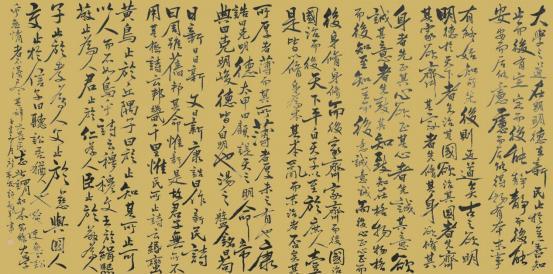 大學之道在明明德在親民在止於至善知
止而後有定定而後能靜靜而後能
安安而後能慮慮而後能得物有本末事
有終始知所先後則近道矣古之欲明
明德於天下者先治其國欲治其國者先齊
其家欲齊其家者先脩其身欲脩其
身者先正其心欲正其心者先誠其意欲
誠其意者先致其知致知在格物物格
而後知至知至而後意誠意誠而後心正心正而
後身脩身脩而後家齊家齊而後國治
國治而後天下平自天子以至於庶人壹
是皆以脩身為本其本亂而末治者否矣其
所厚者薄而其所薄者厚未之有也康
誥曰克明德大甲曰顧諟天之明命帝
典曰克明峻德皆自明也湯之盤銘曰苟
日新日日新又日新康誥曰作新民詩
曰周雖舊邦其命惟新是故君子無所不
用其極詩云邦畿千里惟民所止詩云緡蠻
黃鳥止於丘隅子曰於止知其所止可
以人而不如鳥乎詩云穆穆文王於緝熙
敬止為人君止於仁為人臣止於敬為人
子止於孝為人父止於慈與國人
交止於信子曰聽訟吾猶人也必也使無訟
乎無情者不得盡其辭大畏民志此謂知本